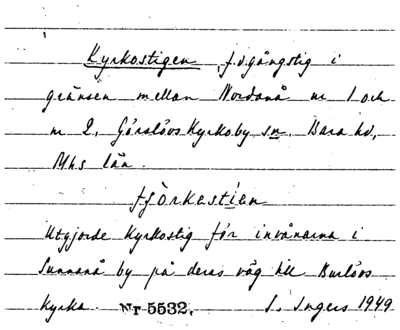 Kyrkostigen, f.d. gångstig i
gränsen mellan Nordanå nr 1 och
nr 2, Görslövs Kyrkoby sn, Bara hd,
Mhs län.
fjörkastien
Utgjorde Kyrkostig för invånarna i
Sunnanå by på deras väg till Burlövs
Kyrka. Nr 5532. I. Ingers 1949